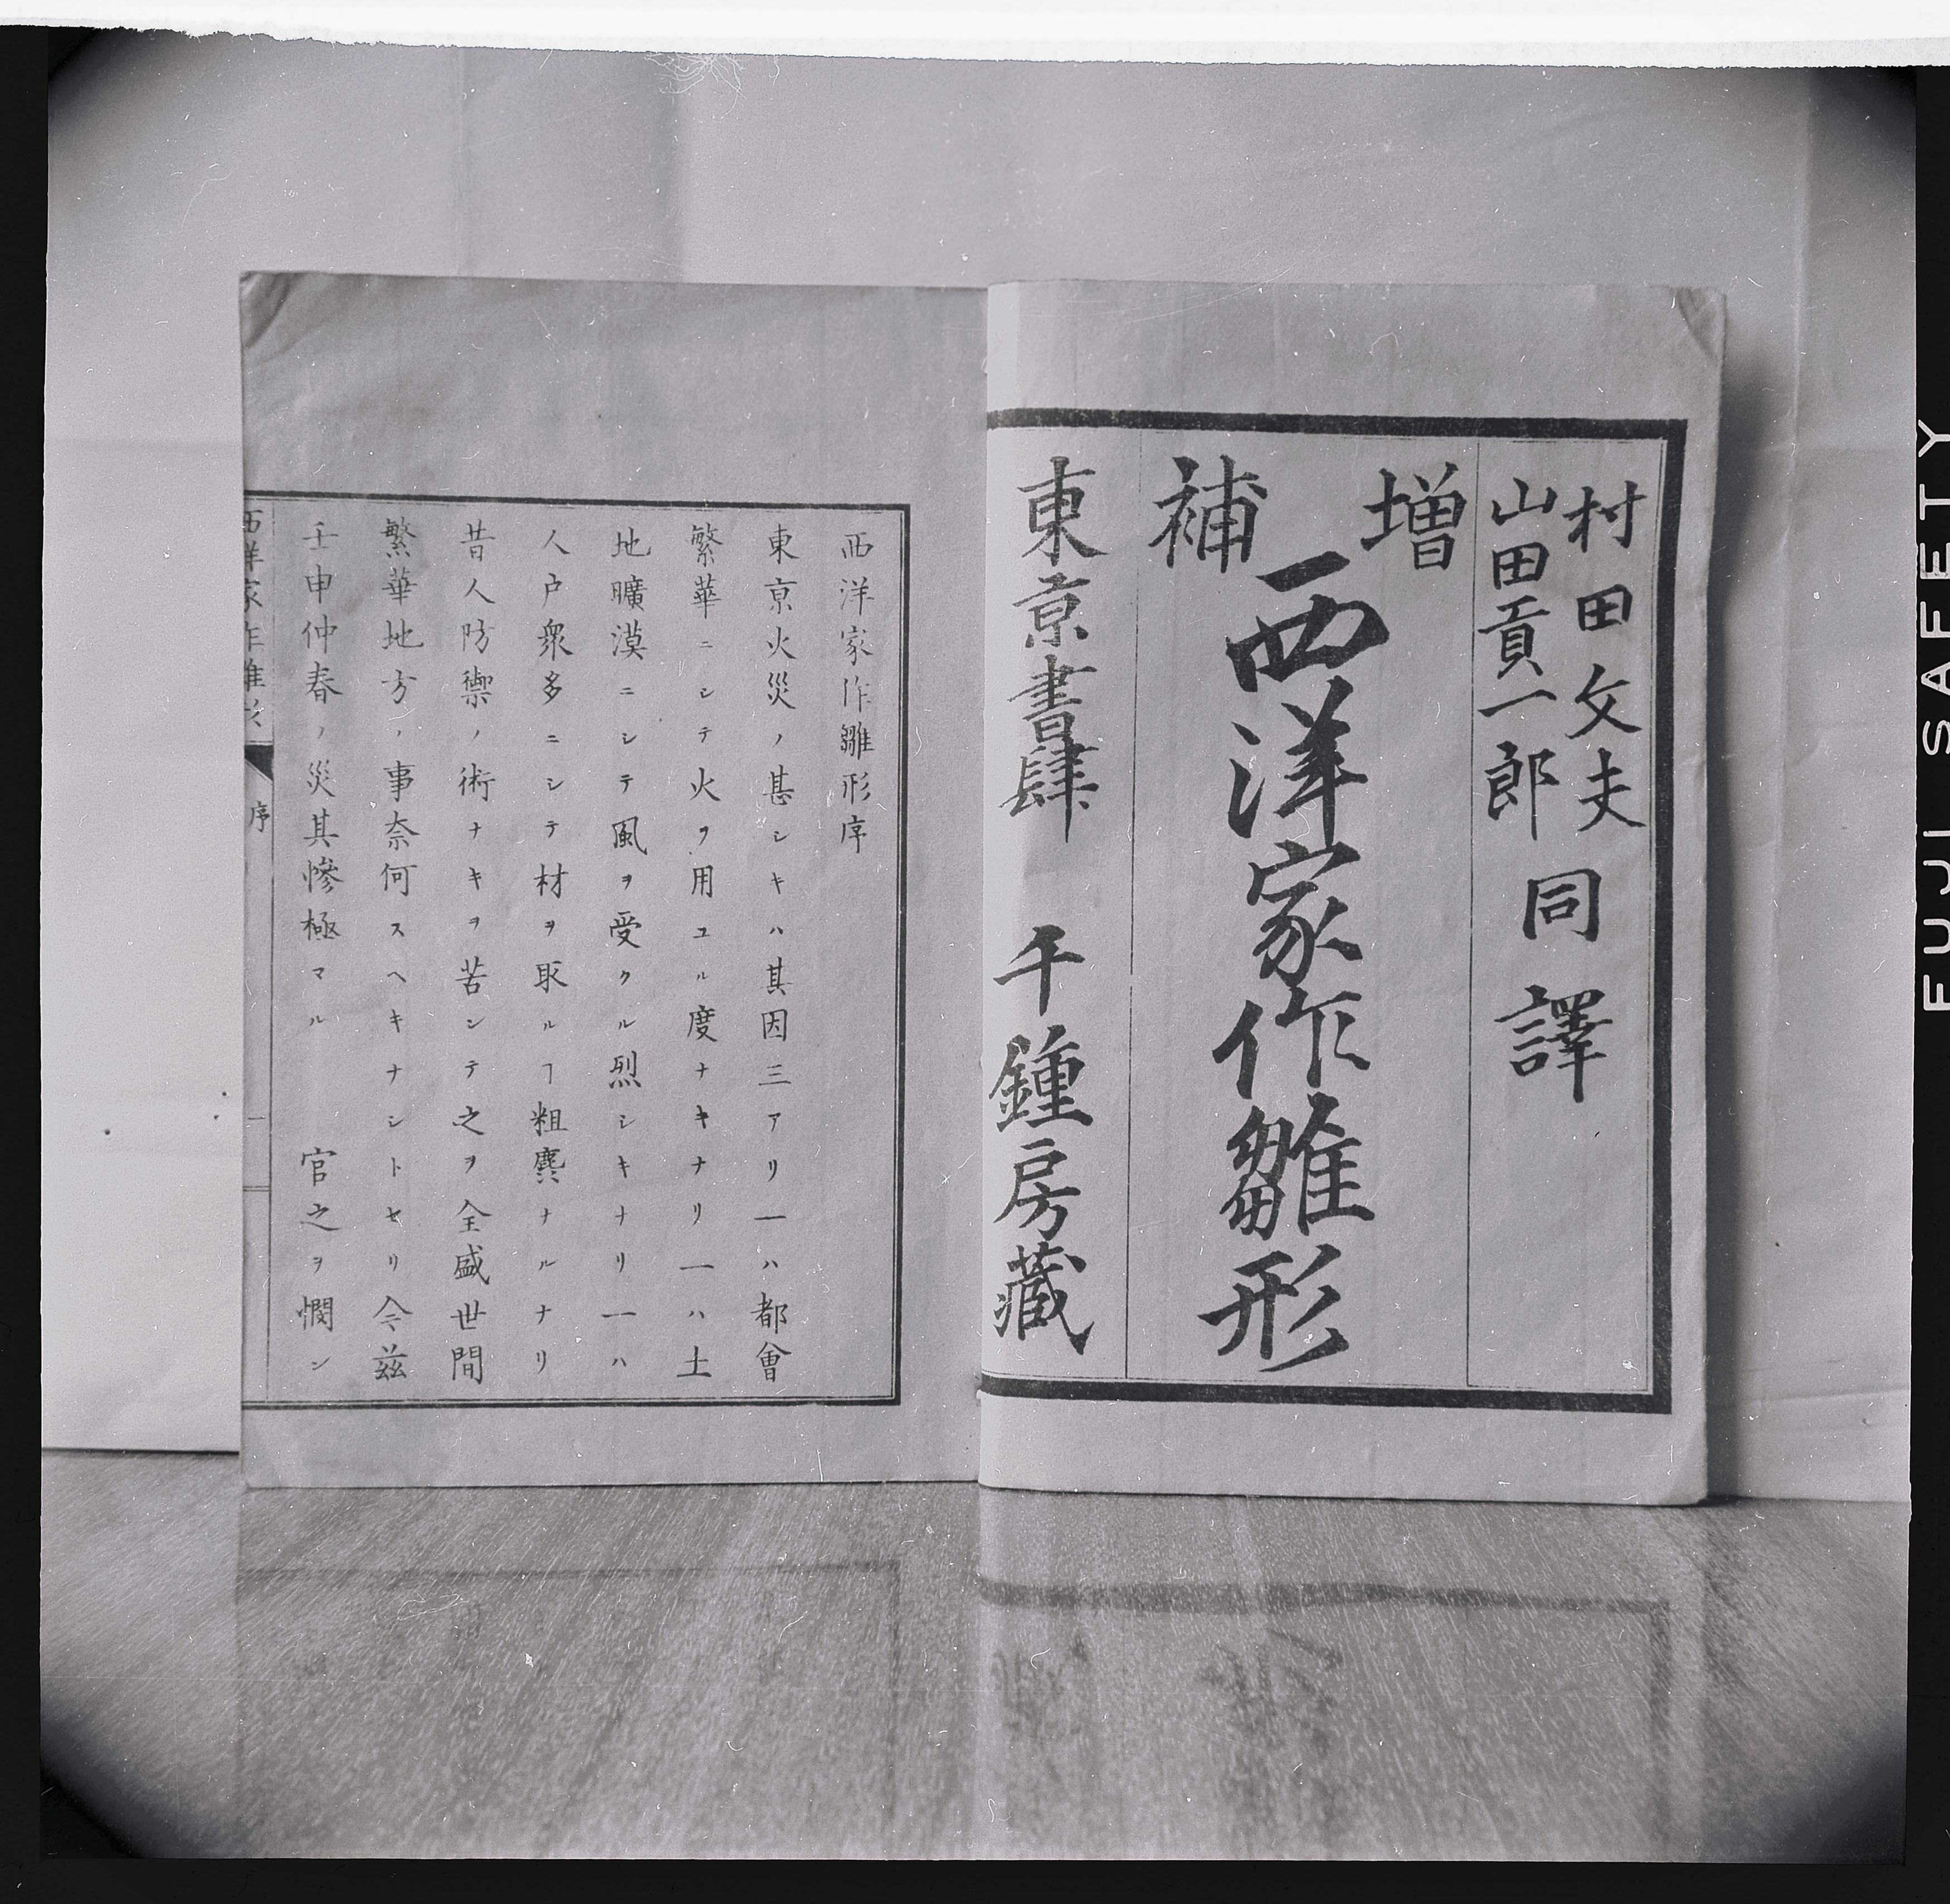 村田文夫
山田貢一郎
同譯
增補
西洋家作雛形
東京書肆 千鍾房藏
西洋家作雛形序
東京火災ノ甚シキハ其因三アリ一ハ都會
繁華ニシテ火ヲ用ユル度ナキナリ一ハ土
地曠漠ニシテ風ヲ受クル烈シキナリ一ハ
人戸衆多ニシテ材ヲ取ルヿ粗麁ナルナリ
昔人防禦ノ術ナキヲ苦シテ之ヲ全盛世間
繁華地方ノ事奈何スヘキナシトセリ今玆
壬申仲春ノ災其慘極マル 官之ヲ憫ン
西洋家作雛形
序
一
FUJI SAFETY